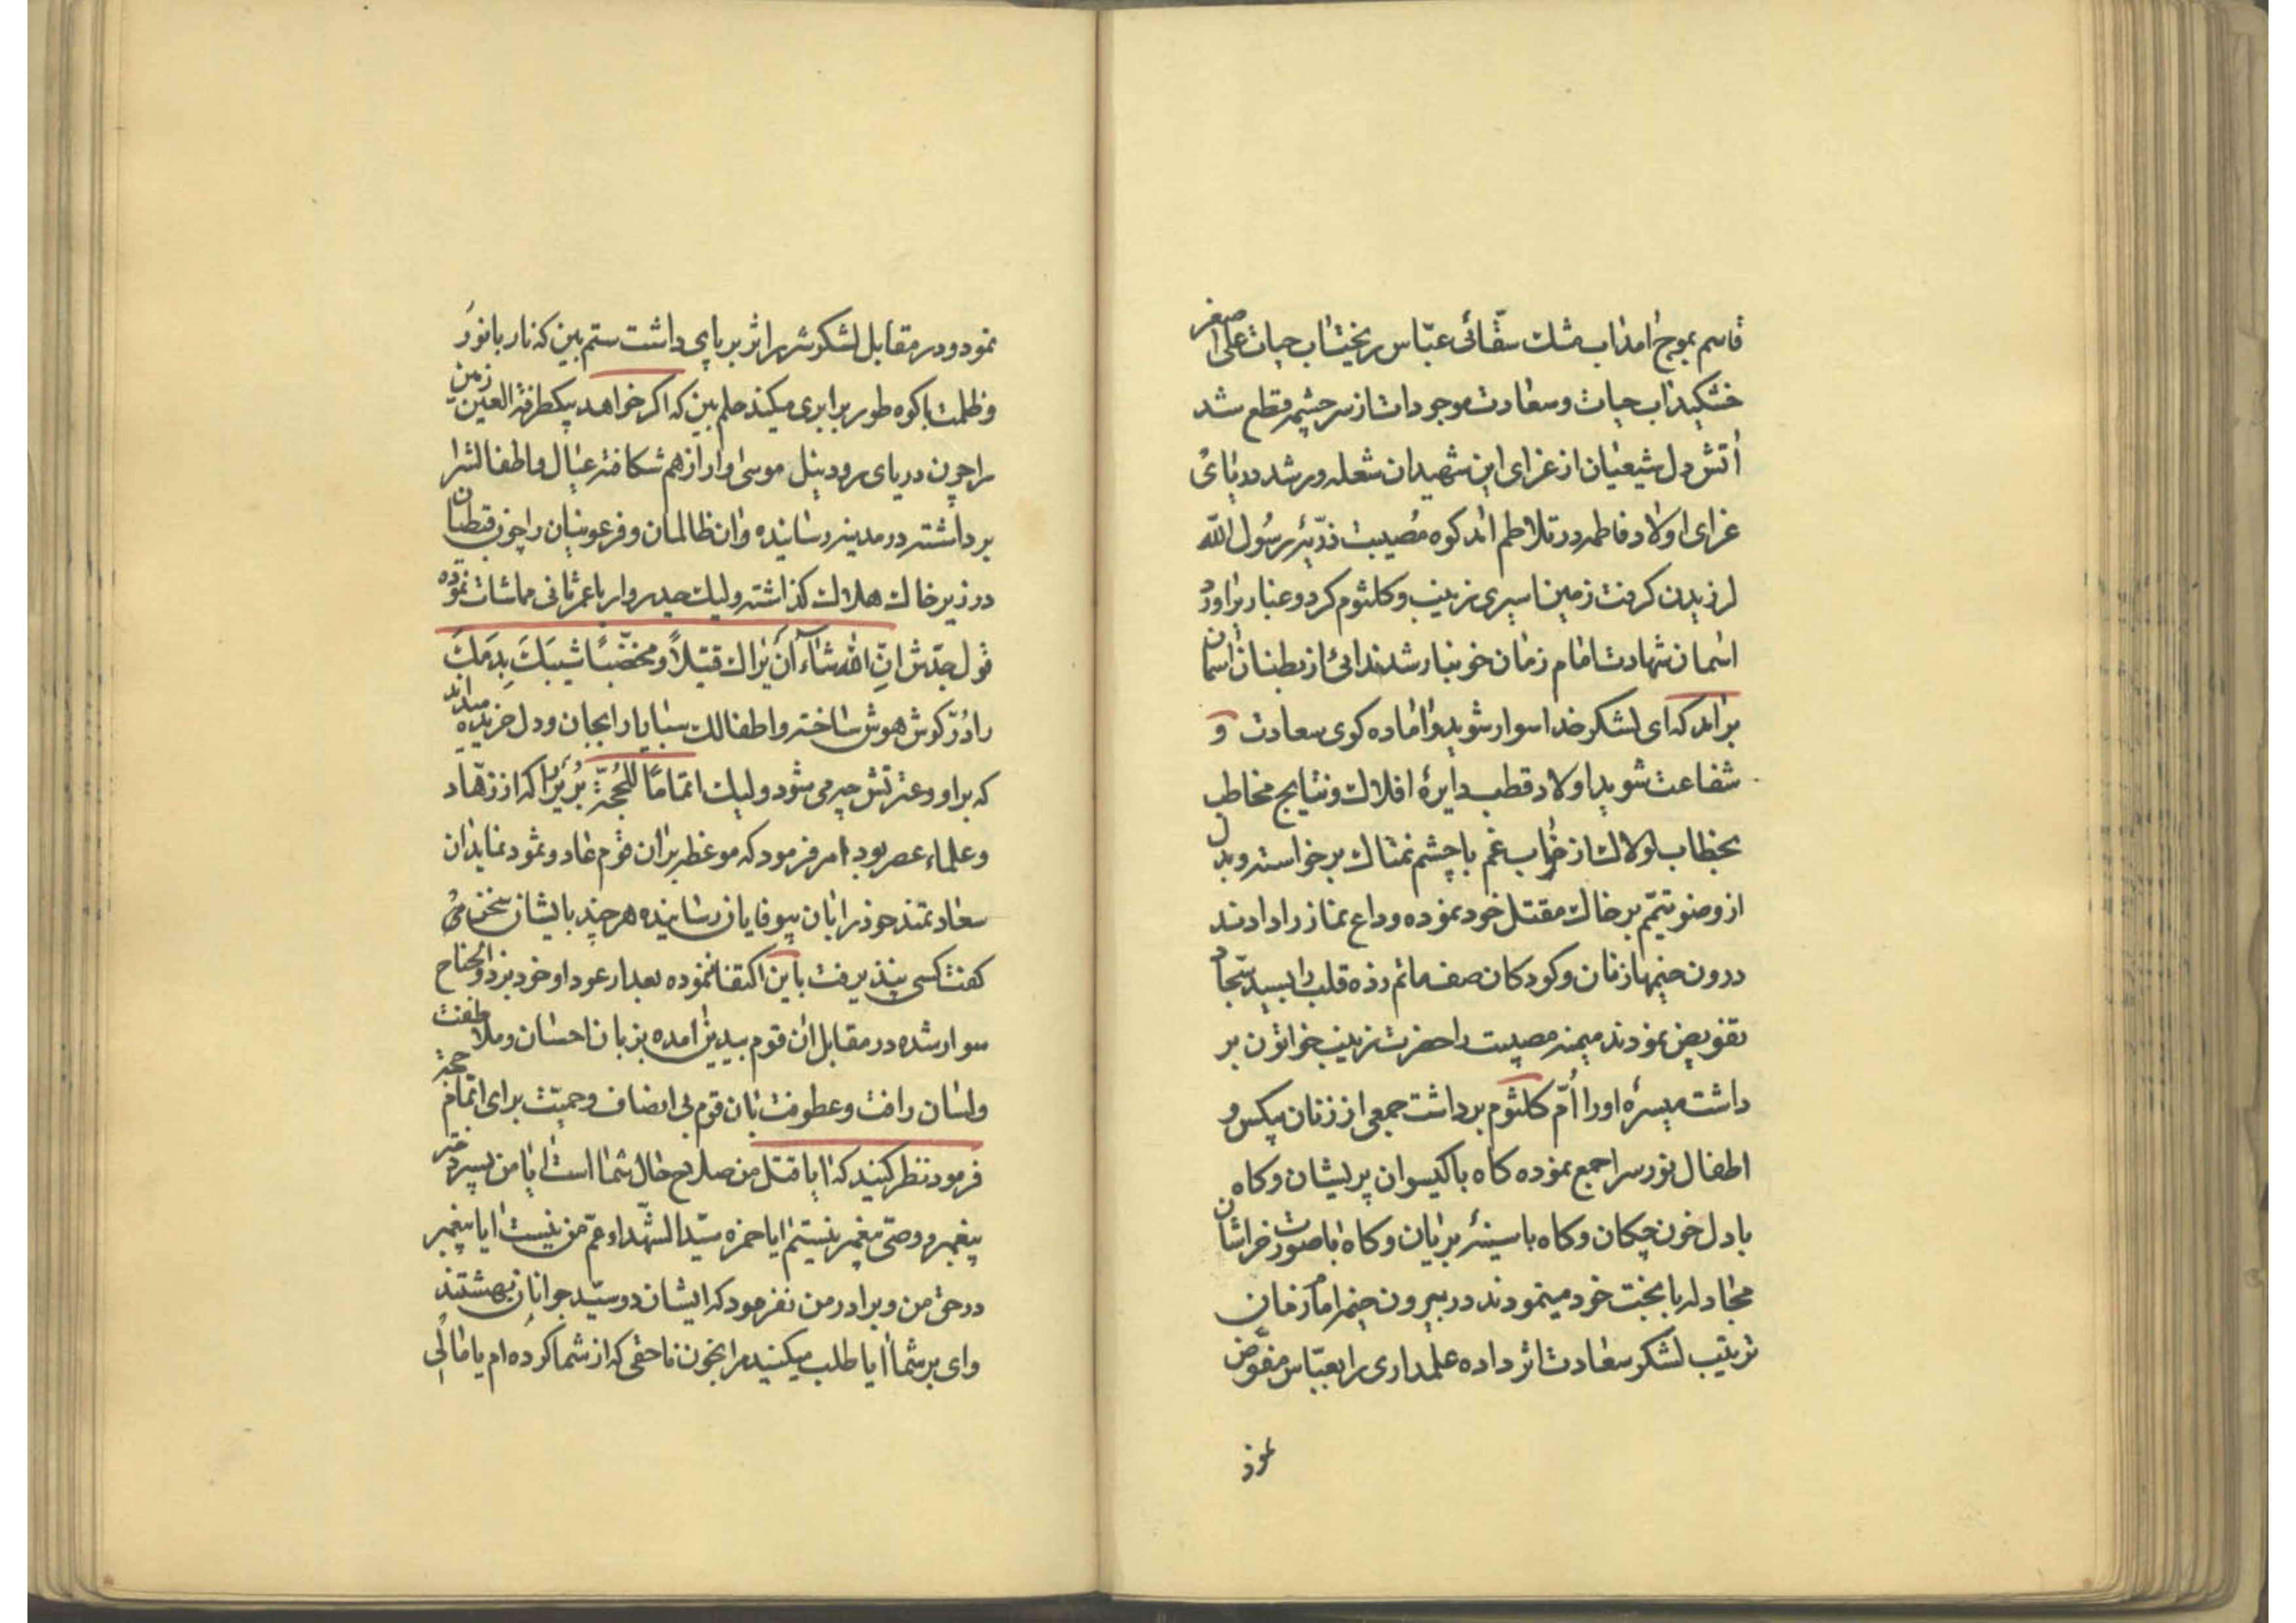 قاسم بموج امد اب مشك سقّائی عبّاس ریخت اب حیات علی اصغر
خشكید اب حیات و سعادت موجودات از سرچشمه قطع شد
اتش دل شیعیان از عزای این شهیدان شعله ور شد دریای
عزای اولاد فاطمه در تلاطم امد كوه مُصیبت ذرّیّه رسُول الله
لرزیدن كرفت زمین اسیری زینب و كلثوم كرد و غبار براورد
اسمان شهادت امام زمان خونبار شد ندائی از بطنان اسمان
برامد كه ای لشكر خدا سوار شوید و اماده كوی سعادت و
شفاعت شوید اولاد قطب دایرهٔ افلاك و نتایج مخاطب
بخطاب لولاك از خواب غم با چشم نمناك برخواسته و بدل
از وضو تیمّم بر خاك مقتل خود نموده وداع نماز را دادند
درون خیمها زنان و كودكان صف ماتم زده قلب را بسید سجّاد
تفویض نمودند میمنه مصیبت را حضرت زینب خواتون بر
داشت میسرهٔ او را اُمّ كلثوم برداشت جمعی از زنان بیكس و
اطفال نورس را جمع نموده كاه با كیسوان پریشان و كاه
با دل خون چكان و كاه با سینهٔ بریان و كاه با صورت خراشان
مجادله با بخت خود مینمودند در بیرون خیمه امام زمان
ترتیب لشكر سعادت اثر داده علمداری را بعبّاس مفوّض
نمود
نمود و در مقابل لشكر شرر اثر بر پای داشت ستم بین كه نار با نور
و ظلمت با كوه طور برابری میكند حلم بین كه اكر خواهد بیكطرفة العین زمین
را چون دریای رود نیل موسی وار از هم شكافته عیال و اطفالش را
برداشته در مدینه رسانیده و ان ظالمان و فرعونیان را چون قبطیان
در زیر خاك هلاك كذاشته ولیك حیدر وار با عمر ثانی مماشات نموده
قول جدّش انّ الله شاء أن یراك قتیلاً و مخضّباً شیبَك بِدَمِك
را دُرّ كوش هوش ساخته و اطفالك سبایا را بجان و دل خریده میداند
كه بر او و عترتش چه می شود ولیك اتماماً للحُجّة بُریر را كه از زهّاد
و علماء عصر بود امر فرمود كه موعظه بر ان قوم عاد و ثمود نماید ان
سعادتمند خود را بان بیوفایان رسانیده هر چند با ایشان سخن می
كفت كسی نپذیرفت باین اكتفا ننموده بعد از عود او خود بر ذو الجناح
سوار شده در مقابل ان قوم بیدین امده بزبان احسان و ملاطفت
و لسان رافت و عطوفت بان قوم بی انصاف و حمیّت برای اتمام حجة
فرمود نظر كنید كه ایا قتل من صلاح حال شما است ایا من پسر دختر
پیغمبر و وصّی پیغمبر نیستم ایا حمزه سیّد الشهدا و عمّ من نیست ایا پیغمبر
در حق من و برادر من نفرمود كه ایشان دو سیّد جوانان بهشتند
وای بر شما ایا طلب میكنید مرا بخون ناحقی كه از شما كرده ام یا مالی